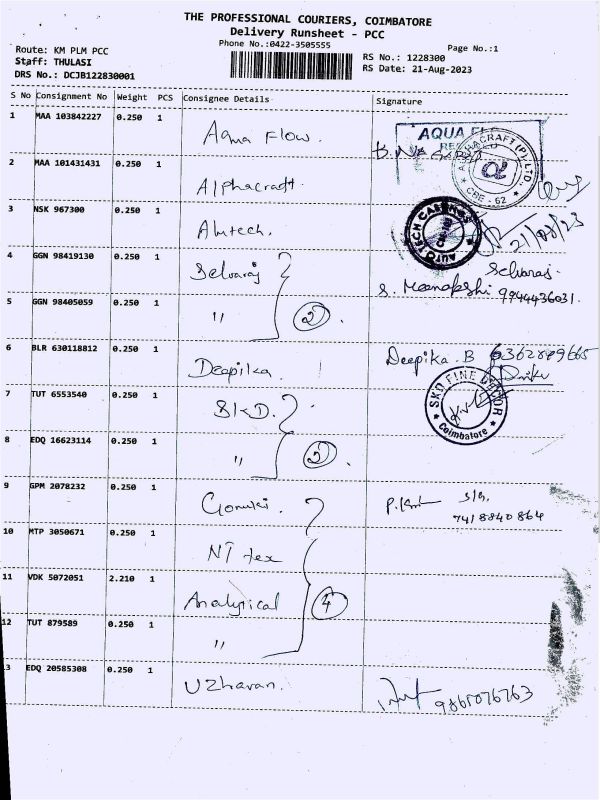 THE PROFESSIONAL COURIERS, COIMBATORE
Delivery Runsheet - PCC
Phone No.:0422-3505555
Page No.:1
Route: KM PLM PCC
RS No.: 1228300
Staff: THULASI
RS Date: 21-Aug-2023
DRS No.: DCJB122830001
S No Consignment No Weight PCS Consignee Details Signature
1 MAA 103842227 0.250 1 Aqua Flow.
AQUA
2 MAA 101431431 0.250 1 Alphacraft.
CBE - 62
3 NSK 967300 0.250 1
AUTO TECH
21/08/23
4 GGN 98419130 0.250 1 Selvaraj
Selvaraj.
S. Meenakshi 9944436031.
5 GGN 98405059 0.250 1 " 2.
6 BLR 630118812 0.250 1 Deepika.
Deepika. B
7 TUT 6553540 0.250 1 SKD.
SKD FINE DECOR
Coimbatore
8 EDQ 16623114 0.250 1 " 2.
9 GPM 2078232 0.250 1
7418840864
10 MTP 3050671 0.250 1 NT tex
11 VDK 5072051 2.210 1 Analytical 4
12 TUT 879589 0.250 1 "
13 EDQ 20585308 0.250 1 Uzhavan.
9865076763